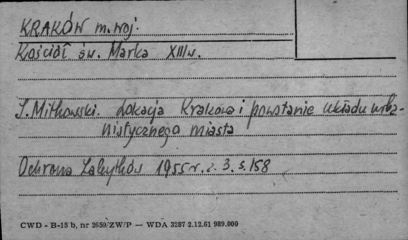 KRAKÓW m. woj.
Kościół św. Marka XIIIw.
J. Mitkowski. Lokacja Krakowa i powstanie układu urba-
nistycznego miasta
Ochrona Zabytków 1955 r. z. 3. s. 158
CWD - B-15 b, nr 2659/ZW/P — WDA 3287 2.12.61 989.000